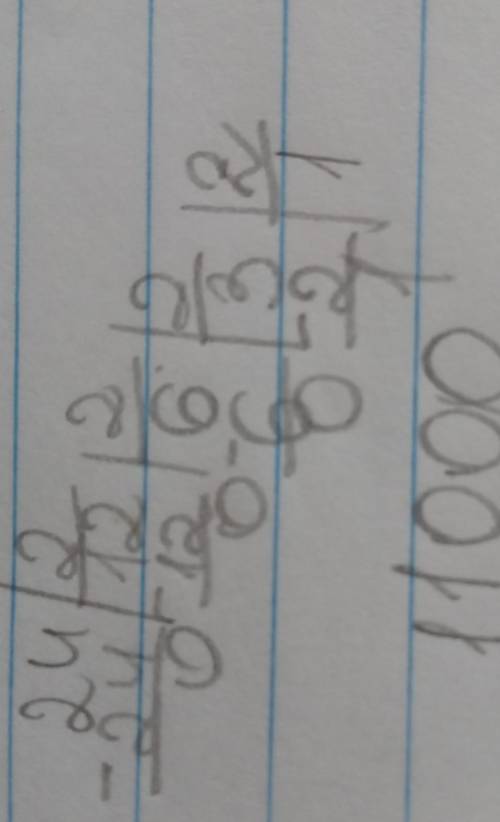 24 | 2
-24 | 12 | 2
0 -12 | 6 | 2
0 -6 | 3 | 2
0 -2 | 1
1
11000